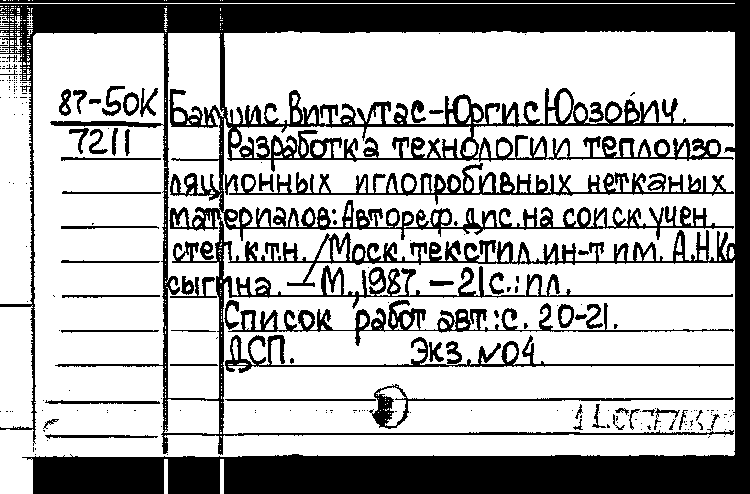 87-50К
7211
Бакшис, Витаутас-Юргис Юозович.
Разработка технологии теплоизо-
ляционных иглопробивных нетканых
материалов: Автореф. дис. на соиск. учен.
степ. к.т.н. / Моск. текстил. ин-т им. А.Н. Ко
сыгина. — М., 1987. — 21 с.: ил.
Список работ авт.: с. 20-21.
ДСП. Экз. №04.